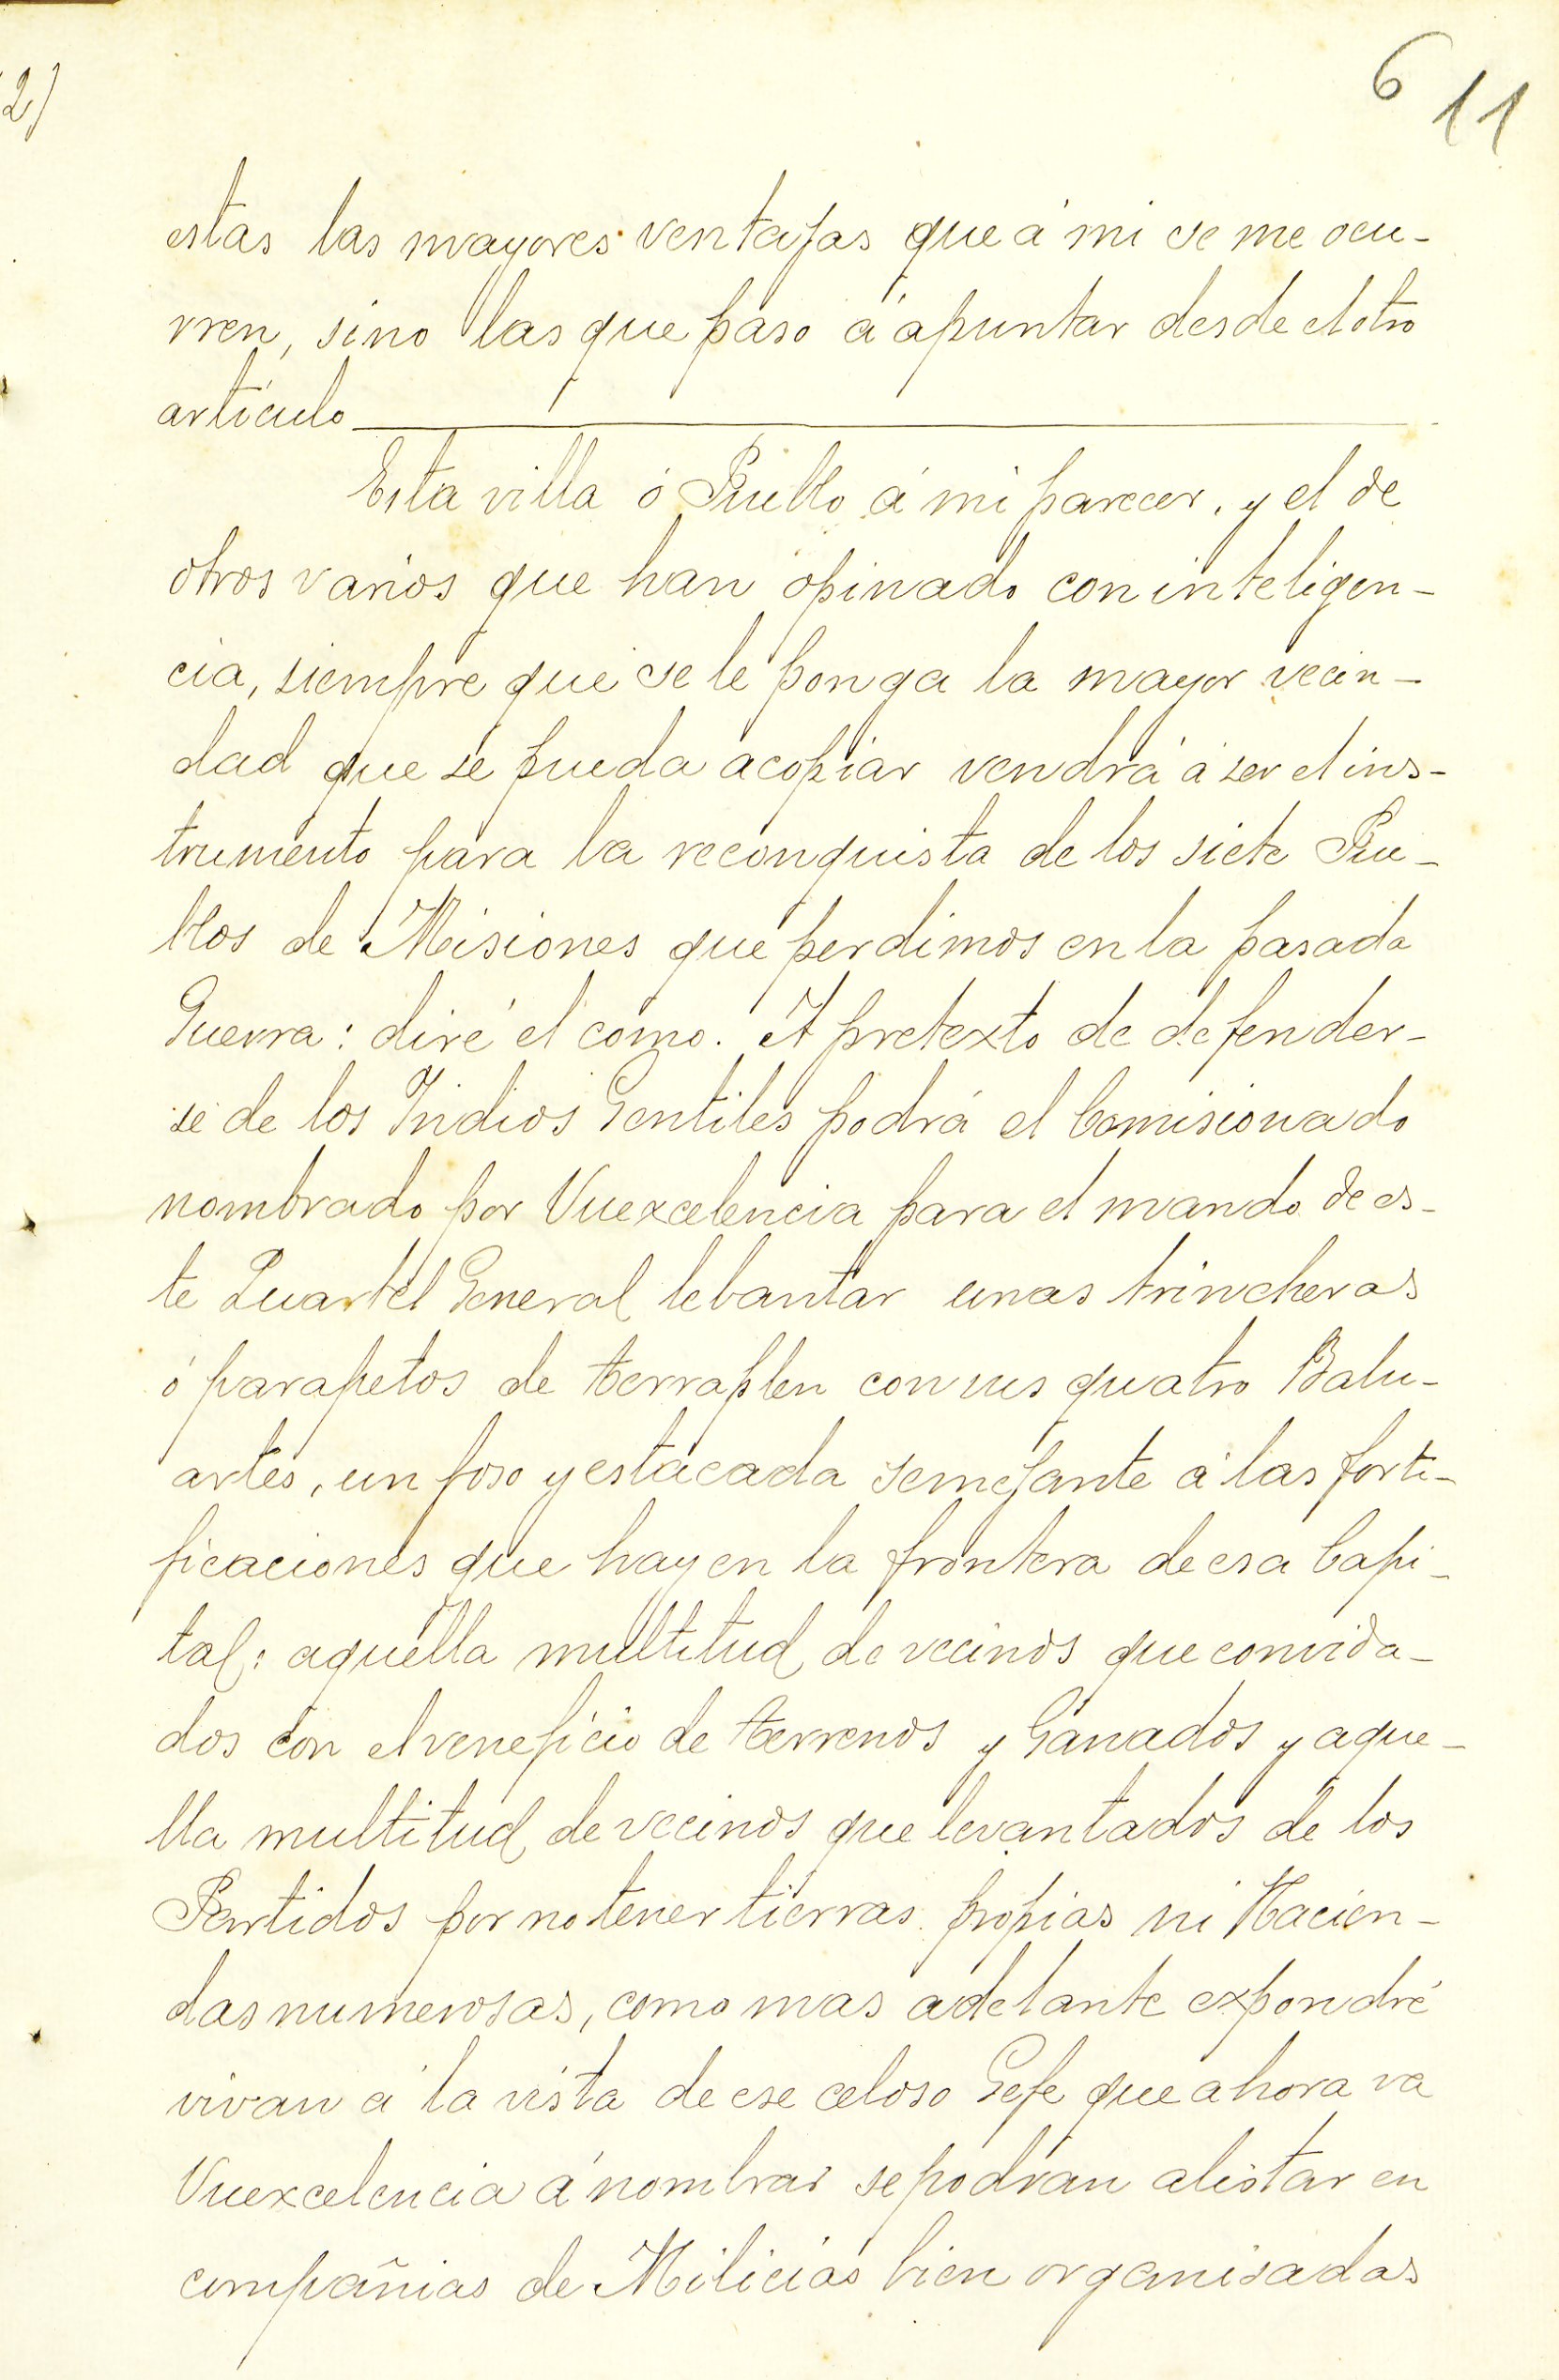 2)
6 11
estas las mayores ventajas que á mi se me ocu-
rren, sino las que paso á apuntar desde el otro
artículo
Esta villa ó Pueblo á mi parecer, y el de
otros varios que han opinado con inteligen-
cia, siempre que se le ponga la mayor vecin-
dad que se pueda acopiar vendrá á ser el ins-
trumento para la reconquista de los siete Pue-
blos de Misiones que perdimos en la pasada
Guerra: diré el como. A pretexto de defender-
se de los Indios Gentiles podrá el Comisionado
nombrado por Vuexcelencia para el mando de es-
te Quartel General lebantar unas trincheras
ó parapetos de terraplen con sus quatro Balu-
artes, un foso y estacada semejante á las forti-
ficaciones que hay en la frontera de esa Capi-
tal: aquella multitud de vecinos que convida-
dos con el veneficio de terrenos y Ganados y aque-
lla multitud de vecinos que levantados de los
Partidos por no tener tierras propias ni Hacien-
das numerosas, como mas adelante expondré
vivan á la vista de ese celoso Gefe que ahora va
Vuexcelencia á nombrar se podran alistar en
compañias de Milicias bien organisadas